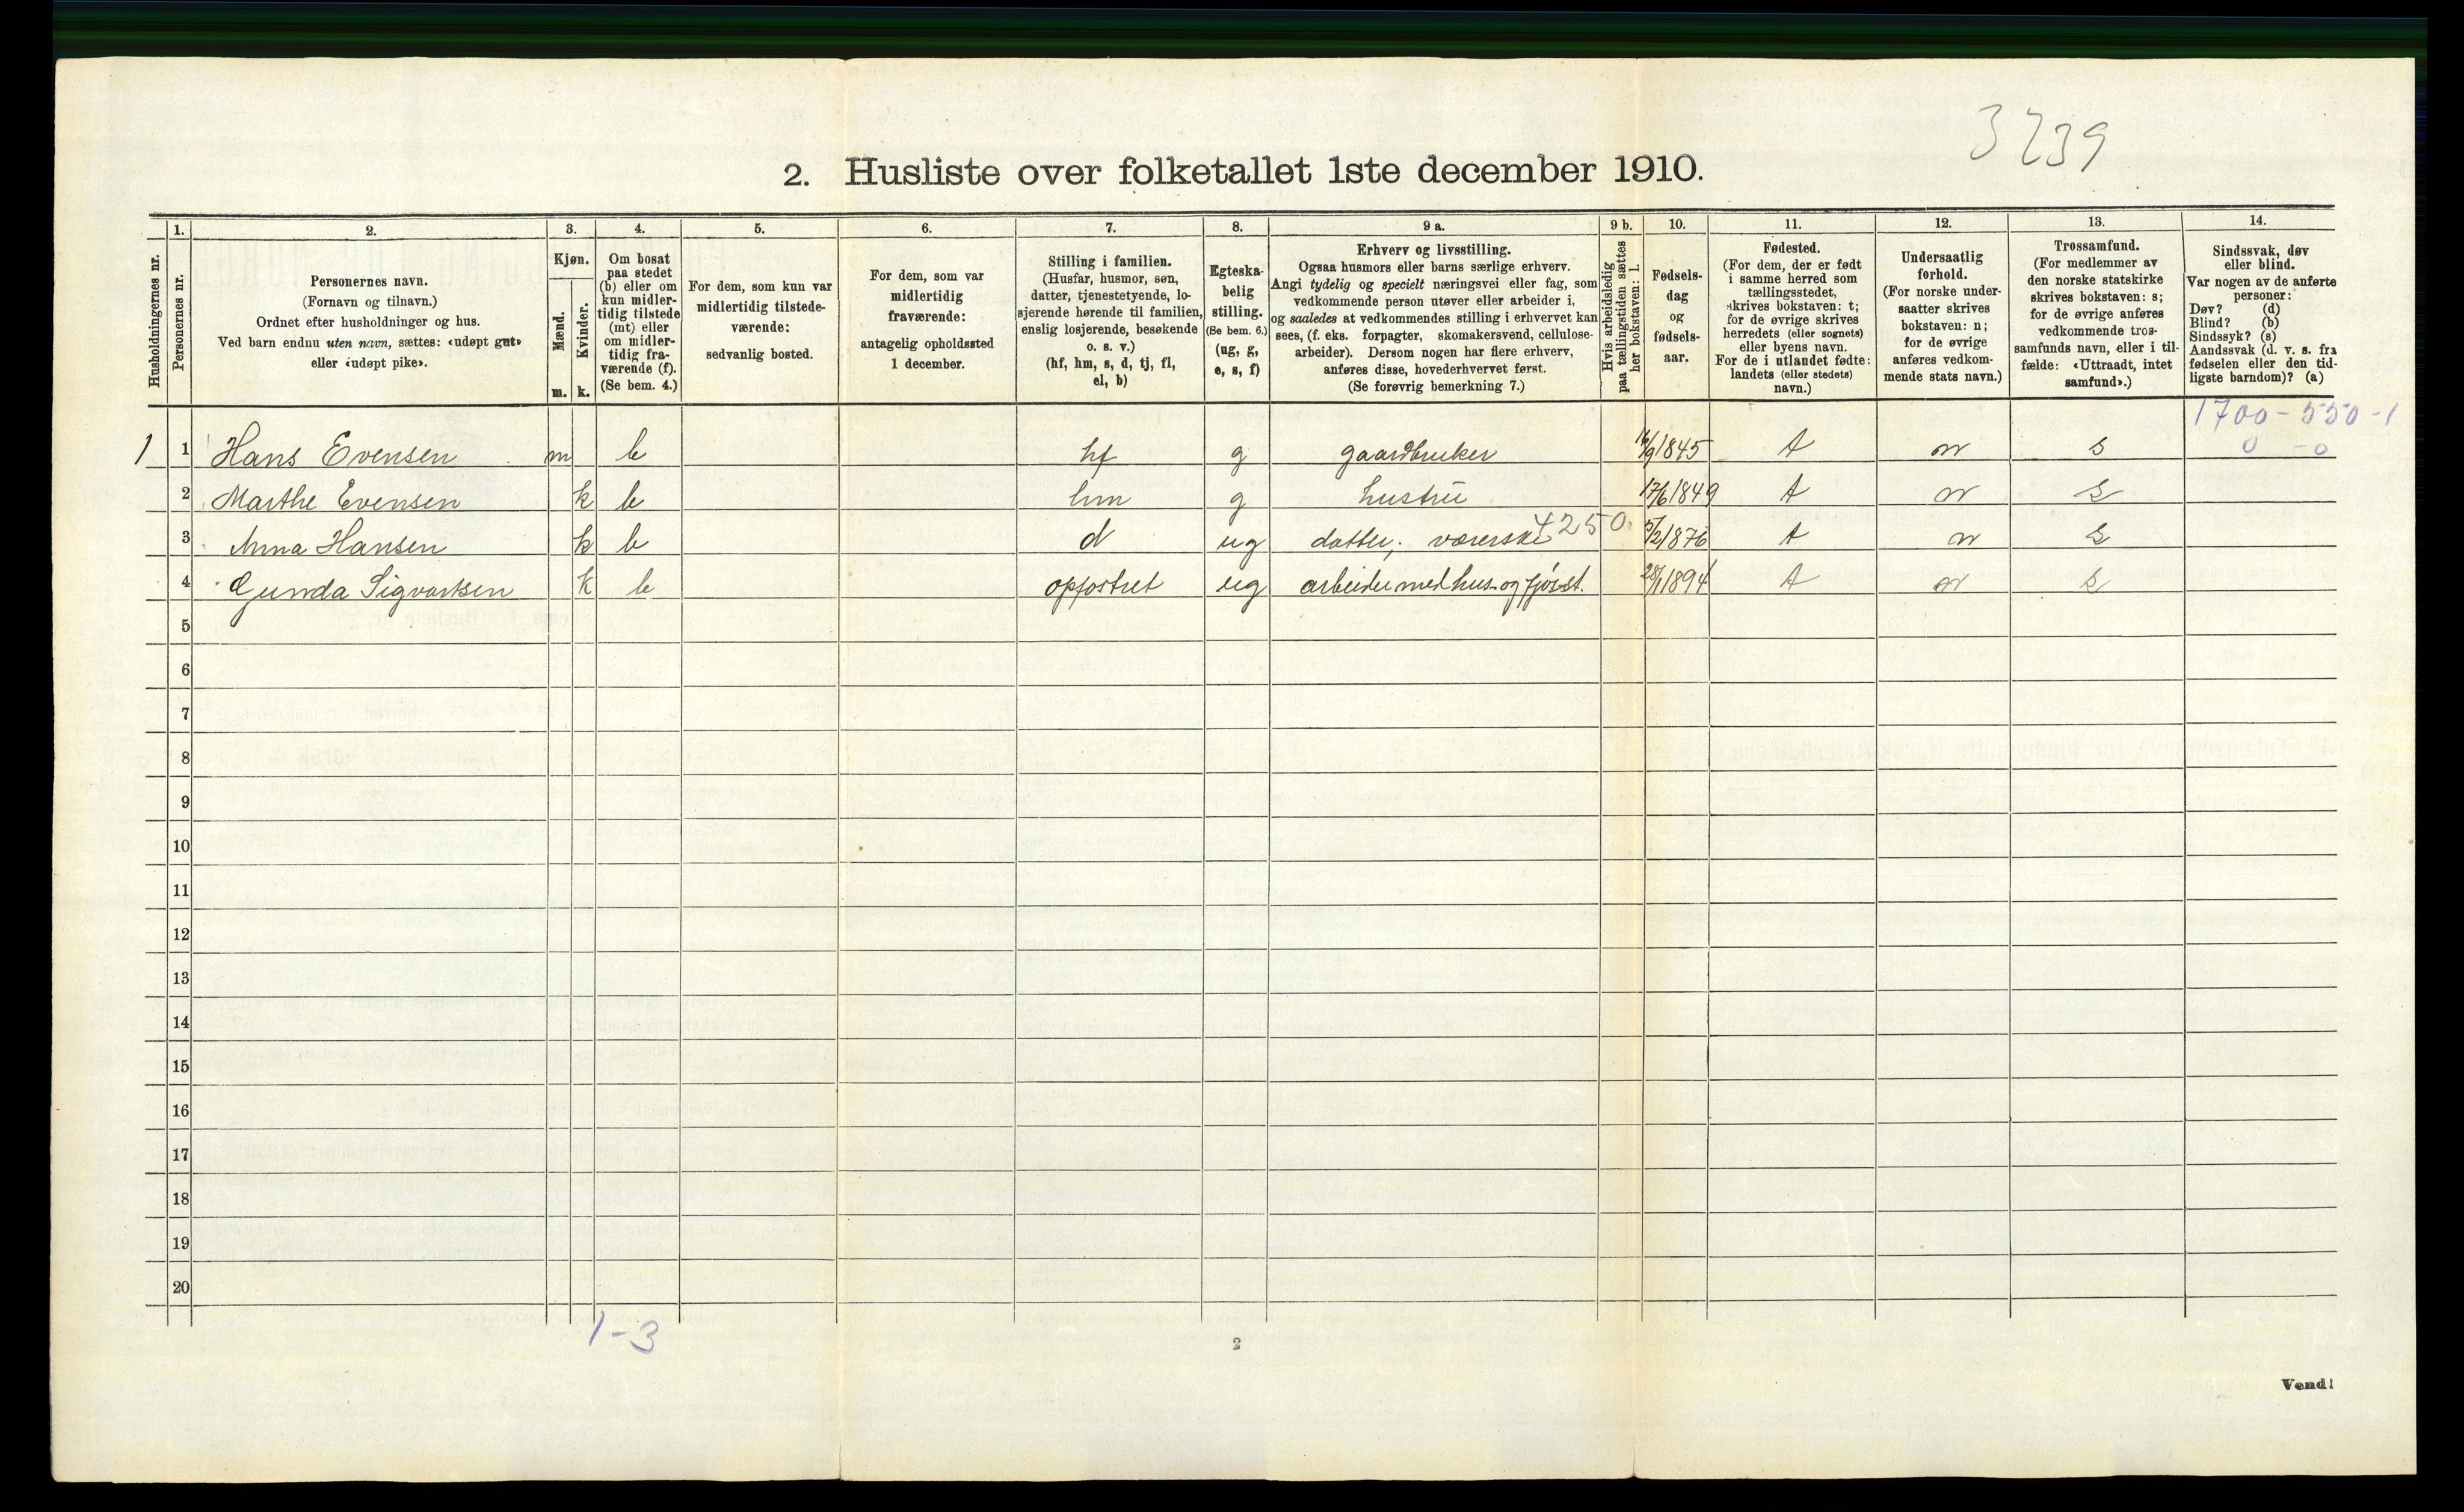 3239
2. Husliste over folketallet 1ste december 1910.
Husholdningernes nr.
1.
Personernes nr.
2.
Personernes navn.
(Fornavn og tilnavn.)
Ordnet efter husholdninger og hus.
Ved barn endnu uten navn, sættes: «udøpt gut»
eller «udøpt pike».
3.
Kjøn.
Mænd.
Kvinder.
m. k.
4.
Om bosat
paa stedet
(b) eller om
kun midler-
tidig tilstede
(mt) eller
om midler-
tidig fra-
værende (f).
(Se bem. 4.)
5.
For dem, som kun var
midlertidig tilstede-
værende:
sedvanlig bosted.
6.
For dem, som var
midlertidig
fraværende:
antagelig opholdssted
1 december.
7.
Stilling i familien.
(Husfar, husmor, søn,
datter, tjenestetyende, lo-
sjerende hørende til familien,
enslig losjerende, besøkende
o. s. v.)
(hf, hm, s, d, tj, fl,
el, b)
8.
Egteska-
belig
stilling.
(Se bem. 6.)
(ug, g,
e, s, f)
9 a.
Erhverv og livsstilling.
Ogsaa husmors eller barns særlige erhverv.
Angi tydelig og specielt næringsvei eller fag, som
vedkommende person utøver eller arbeider i,
og saaledes at vedkommendes stilling i erhvervet kan
sees, (f. eks. forpagter, skomakersvend, cellulose-
arbeider). Dersom nogen har flere erhverv,
anføres disse, hovederhvervet først.
(Se forøvrig bemerkning 7.)
9 b.
Hvis arbeidsledig
paa tællingstiden sættes
her bokstaven: l.
10.
Fødsels-
dag
og
fødsels-
aar.
11.
Fødested.
(For dem, der er født
i samme herred som
tællingsstedet,
skrives bokstaven: t;
for de øvrige skrives
herredets (eller sognets)
eller byens navn.
For de i utlandet fødte:
landets (eller stedets)
navn.)
12.
Undersaatlig
forhold.
(For norske under-
saatter skrives
bokstaven: n;
for de øvrige
anføres vedkom-
mende stats navn.)
13.
Trossamfund.
(For medlemmer av
den norske statskirke
skrives bokstaven: s;
for de øvrige anføres
vedkommende tros-
samfunds navn, eller i til-
fælde: «Uttraadt, intet
samfund».)
14.
Sindssvak, døv
eller blind.
Var nogen av de anførte
personer:
Døv? (d)
Blind? (b)
Sindssyk? (s)
Aandssvak (d. v. s. fra
fødselen eller den tid-
ligste barndom)? (a)
1700-550-1
0-0
1 1 Hans Evensen m b hf g gaardbruker 16/9 1845 t n s
2 Marthe Evensen k b hm g hustru 17/6 1849 t n s
3 Anna Hansen k b d ug datter; væverske 4250. 5/2 1876 t n s
4 Gunda Sigvartsen k b opfostret ug arbeider med hus- og fjøsst. 28/1 1894 t n s
5
6
7
8
9
10
11
12
13
14
15
16
17
18
19
20
1-3
2
Vend!